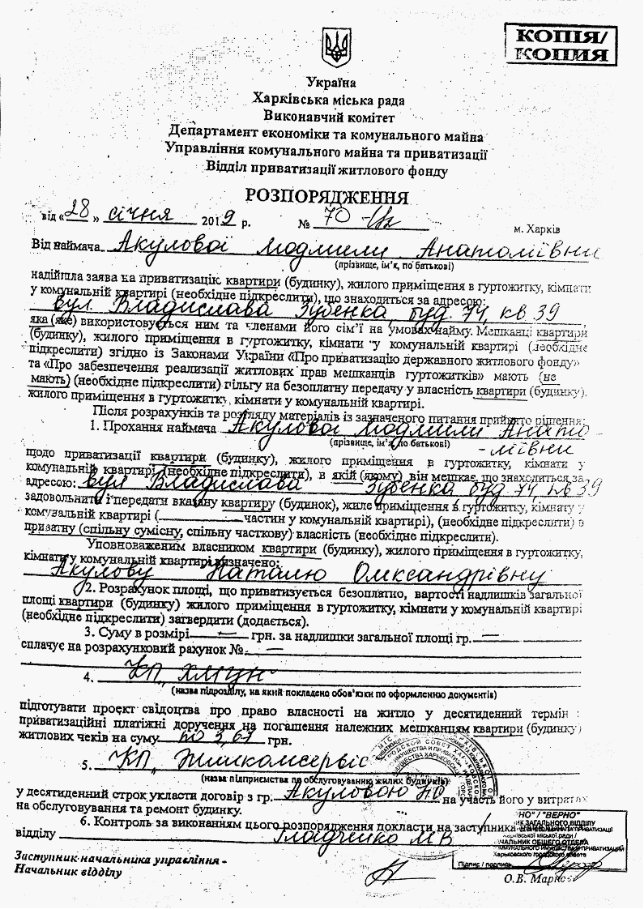 КОПІЯ/
КОПИЯ
Україна
Харківська міська рада
Виконавчий комітет
Департамент економіки та комунального майна
Управління комунального майна та приватизації
Відділ приватизації житлового фонду
РОЗПОРЯДЖЕННЯ
від «28» січня 2019 р. № 70 м. Харків
Від наймача Акулової Людмили Анатоліївни
(прізвище, ім'я, по батькові)
надійшла заява на приватизацію квартири (будинку), жилого приміщення в гуртожитку, кімнати
у комунальній квартирі (необхідне підкреслити), що знаходиться за адресою:
вул Владислава Зубенка, буд. 74, кв 39
яка (яке) використовується ним та членами його сім'ї на умовах найму. Мешканці квартири
(будинку), жилого приміщення в гуртожитку, кімнати у комунальній квартирі (необхідне
підкреслити) згідно із Законами України «Про приватизацію державного житлового фонду»
та «Про забезпечення реалізації житлових прав мешканців гуртожитків» мають (не
мають) (необхідне підкреслити) пільгу на безоплатну передачу у власність квартири (будинку),
жилого приміщення в гуртожитку, кімнати у комунальній квартирі.
Після розрахунків та розгляду матеріалів із зазначеного питання прийнято рішення:
1. Прохання наймача Акулової Людмили Анато
(прізвище, ім'я, по батькові) -ліївни
щодо приватизації квартири (будинку), жилого приміщення в гуртожитку, кімнати у
комунальній квартирі (необхідне підкреслити), в якій (якому) він мешкає, що знаходиться за
адресою: вул Владислава Зубенка буд 74, кв 39
задовольнити і передати вказану квартиру (будинок), жиле приміщення в гуртожитку, кімнату у
комунальній квартирі ( частин у комунальній квартирі), (необхідне підкреслити) в
приватну (спільну сумісну, спільну часткову) власність (необхідне підкреслити).
Уповноваженим власником квартири (будинку), жилого приміщення в гуртожитку,
кімнати у комунальній квартирі визначено:
Акулову Наталю Олександрівну
2. Розрахунок площі, що приватизується безоплатно, вартості надлишків загальної
площі квартири (будинку) жилого приміщення в гуртожитку, кімнати у комунальній квартирі
(необхідне підкреслити) затвердити (додається).
3. Суму в розмірі — грн. за надлишки загальної площі гр. —
сплачує на розрахунковий рахунок № —
4. КП
(назва підрозділу, на який покладено обов'язки по оформленню документів)
підготувати проект свідоцтва про право власності на житло у десятиденний термін
приватизаційні платіжні доручення на погашення належних мешканцям квартири (будинку)
житлових чеків на суму грн.
5. КП Жилкомсервіс
(назва підприємства по обслуговуванню жилих будинків)
у десятиденний строк укласти договір з гр. Акуловою НО на участь його у витратах
на обслуговування та ремонт будинку.
6. Контроль за виконанням цього розпорядження покласти на заступника
відділу
Заступник начальника управління -
Начальник відділу
"ВЕРНО"
Підпис / подпись
О.В.